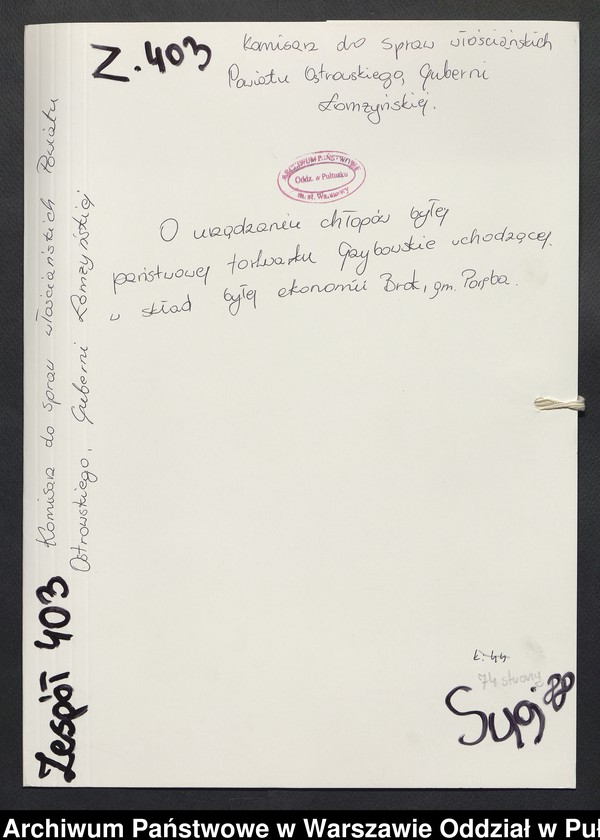 Z. 403
Komisarz do spraw włościańskich
Powiatu Ostrowskiego, Guberni
Łomżyńskiej.
ARCHIWUM PAŃSTWOWE
Oddz. w Pułtusku
m. st. Warszawy
O urządzeniu chłopów byłej
państwowej folwarku Grzybowskie wchodzącej
w skład byłej ekonomii Brok, gm. Poręba.
Komisarz do spraw włościańskich Powiatu
Ostrowskiego, Guberni Łomżyńskiej
Zespół 403
k. 44
74 strony
Syg
Archiwum Państwowe w Warszawie Oddział w Puł